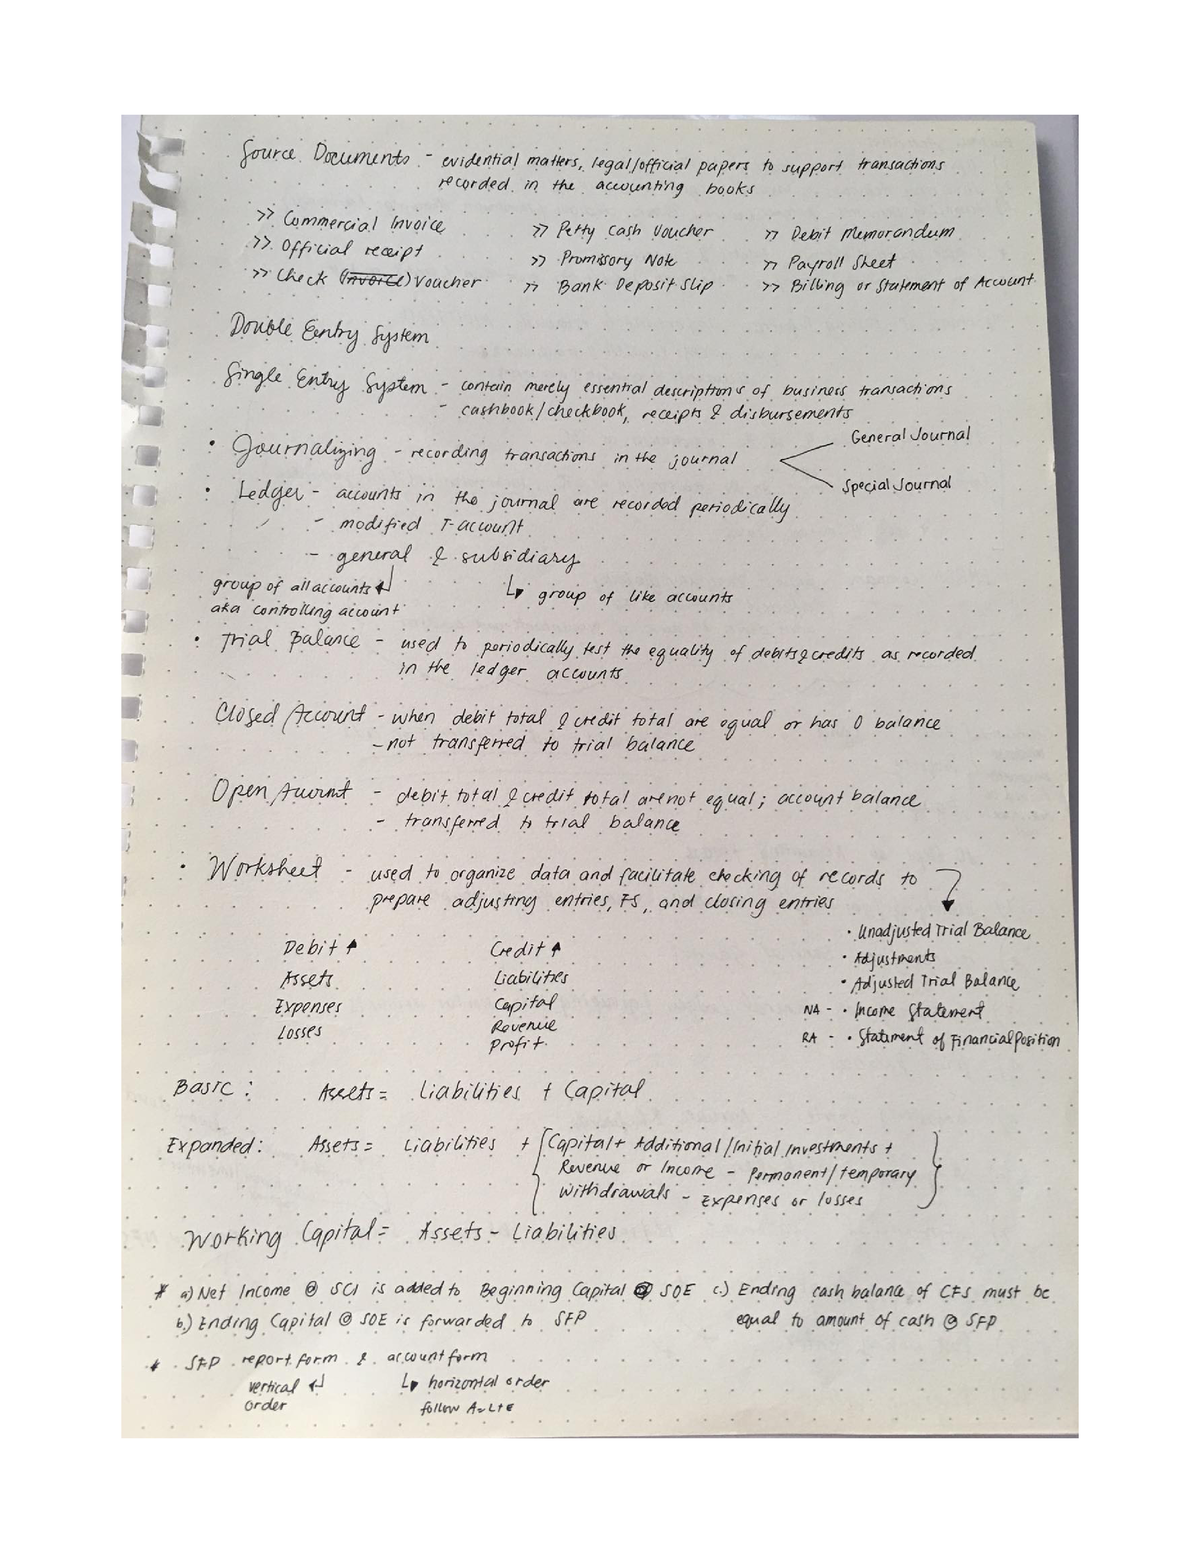 Source Documents - evidential matters, legal/official papers to support transactions
recorded in the accounting books
>> Commercial Invoice
>> Official receipt
>> Check (Invoice) Voucher
>> Petty Cash Voucher
>> Promissory Note
>> Bank Deposit Slip
>> Debit Memorandum
>> Payroll Sheet
>> Billing or Statement of Account
Double Entry System
Single Entry System - contain merely essential descriptions of business transactions
- cashbook/checkbook, receipts & disbursements
• Journalizing - recording transactions in the journal
General Journal
Special Journal
• Ledger - accounts in the journal are recorded periodically
- modified T-account
- general & subsidiary
group of all accounts
aka controlling account
group of like accounts
• Trial Balance - used to periodically test the equality of debits & credits as recorded
in the ledger accounts
Closed Account - when debit total & credit total are equal or has 0 balance
- not transferred to trial balance
Open Account - debit total & credit total are not equal; account balance
- transferred to trial balance
• Worksheet - used to organize data and facilitate checking of records to
prepare adjusting entries, FS, and closing entries
• Unadjusted Trial Balance
• Adjustments
• Adjusted Trial Balance
NA - • Income Statement
RA - • Statement of Financial Position
Debit ↑
Assets
Expenses
Losses
Credit ↑
Liabilities
Capital
Revenue
Profit
Basic: Assets = Liabilities + Capital
Expanded: Assets = Liabilities + {Capital + Additional/Initial Investments +
Revenue or Income - Permanent/temporary
Withdrawals - Expenses or losses}
Working Capital = Assets - Liabilities
* a) Net Income @ SCI is added to Beginning Capital @ SOE
b.) Ending Capital @ SOE is forwarded to SFP
c.) Ending cash balance of CFS must be
equal to amount of cash @ SFP
* SFP report form & account form
vertical
order
horizontal order
follow A=L+E